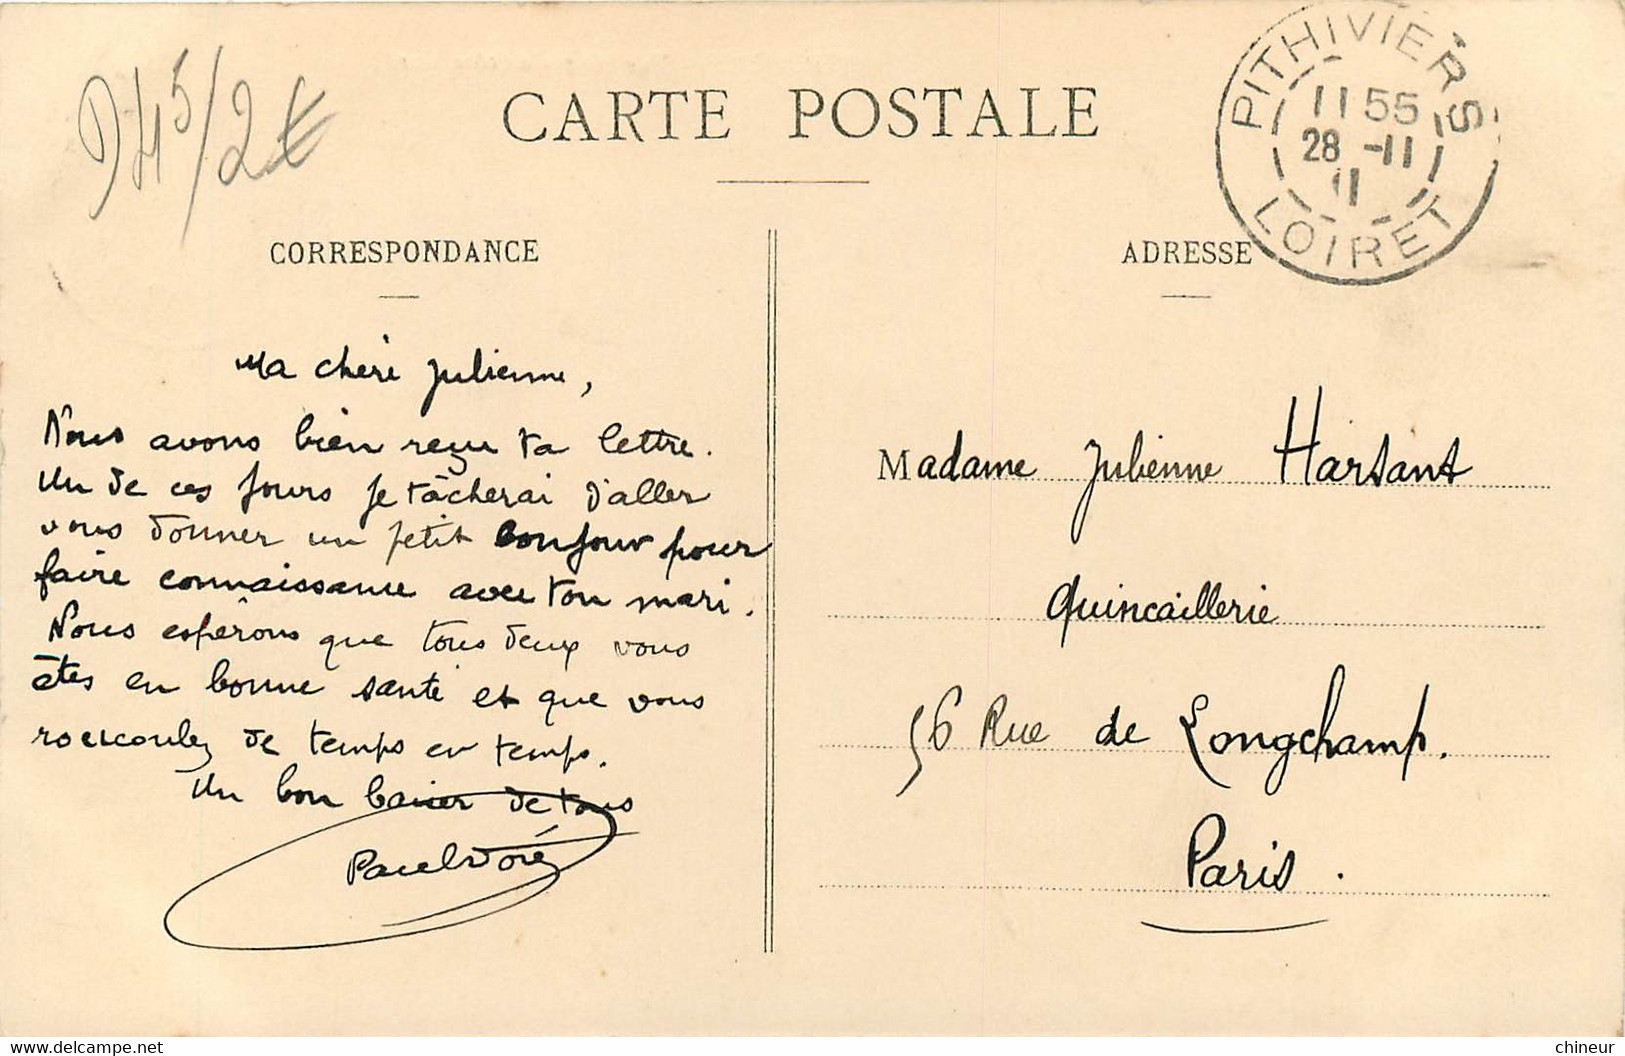 D45/2€
CARTE POSTALE
PITHIVIERS
11 55
28 -11
11
LOIRET
CORRESPONDANCE
Ma chère Julienne,
Nous avons bien reçu ta lettre.
Un de ces jours je tâcherai d'aller
vous donner un petit bonjour pour
faire connaissance avec ton mari.
Nous espérons que tous deux vous
êtes en bonne santé et que vous
de temps en temps.
Un bon baiser de tous
Paul Doré
ADRESSE
Madame Julienne Harsant
Quincaillerie
56 Rue de Longchamp.
Paris.
chineur